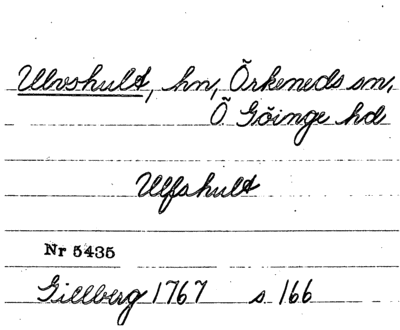 Ulvshult, hn, Örkeneds sn,
Ö Göinge hd
Ulfshult
Nr 5435
Gillberg 1767 s 166